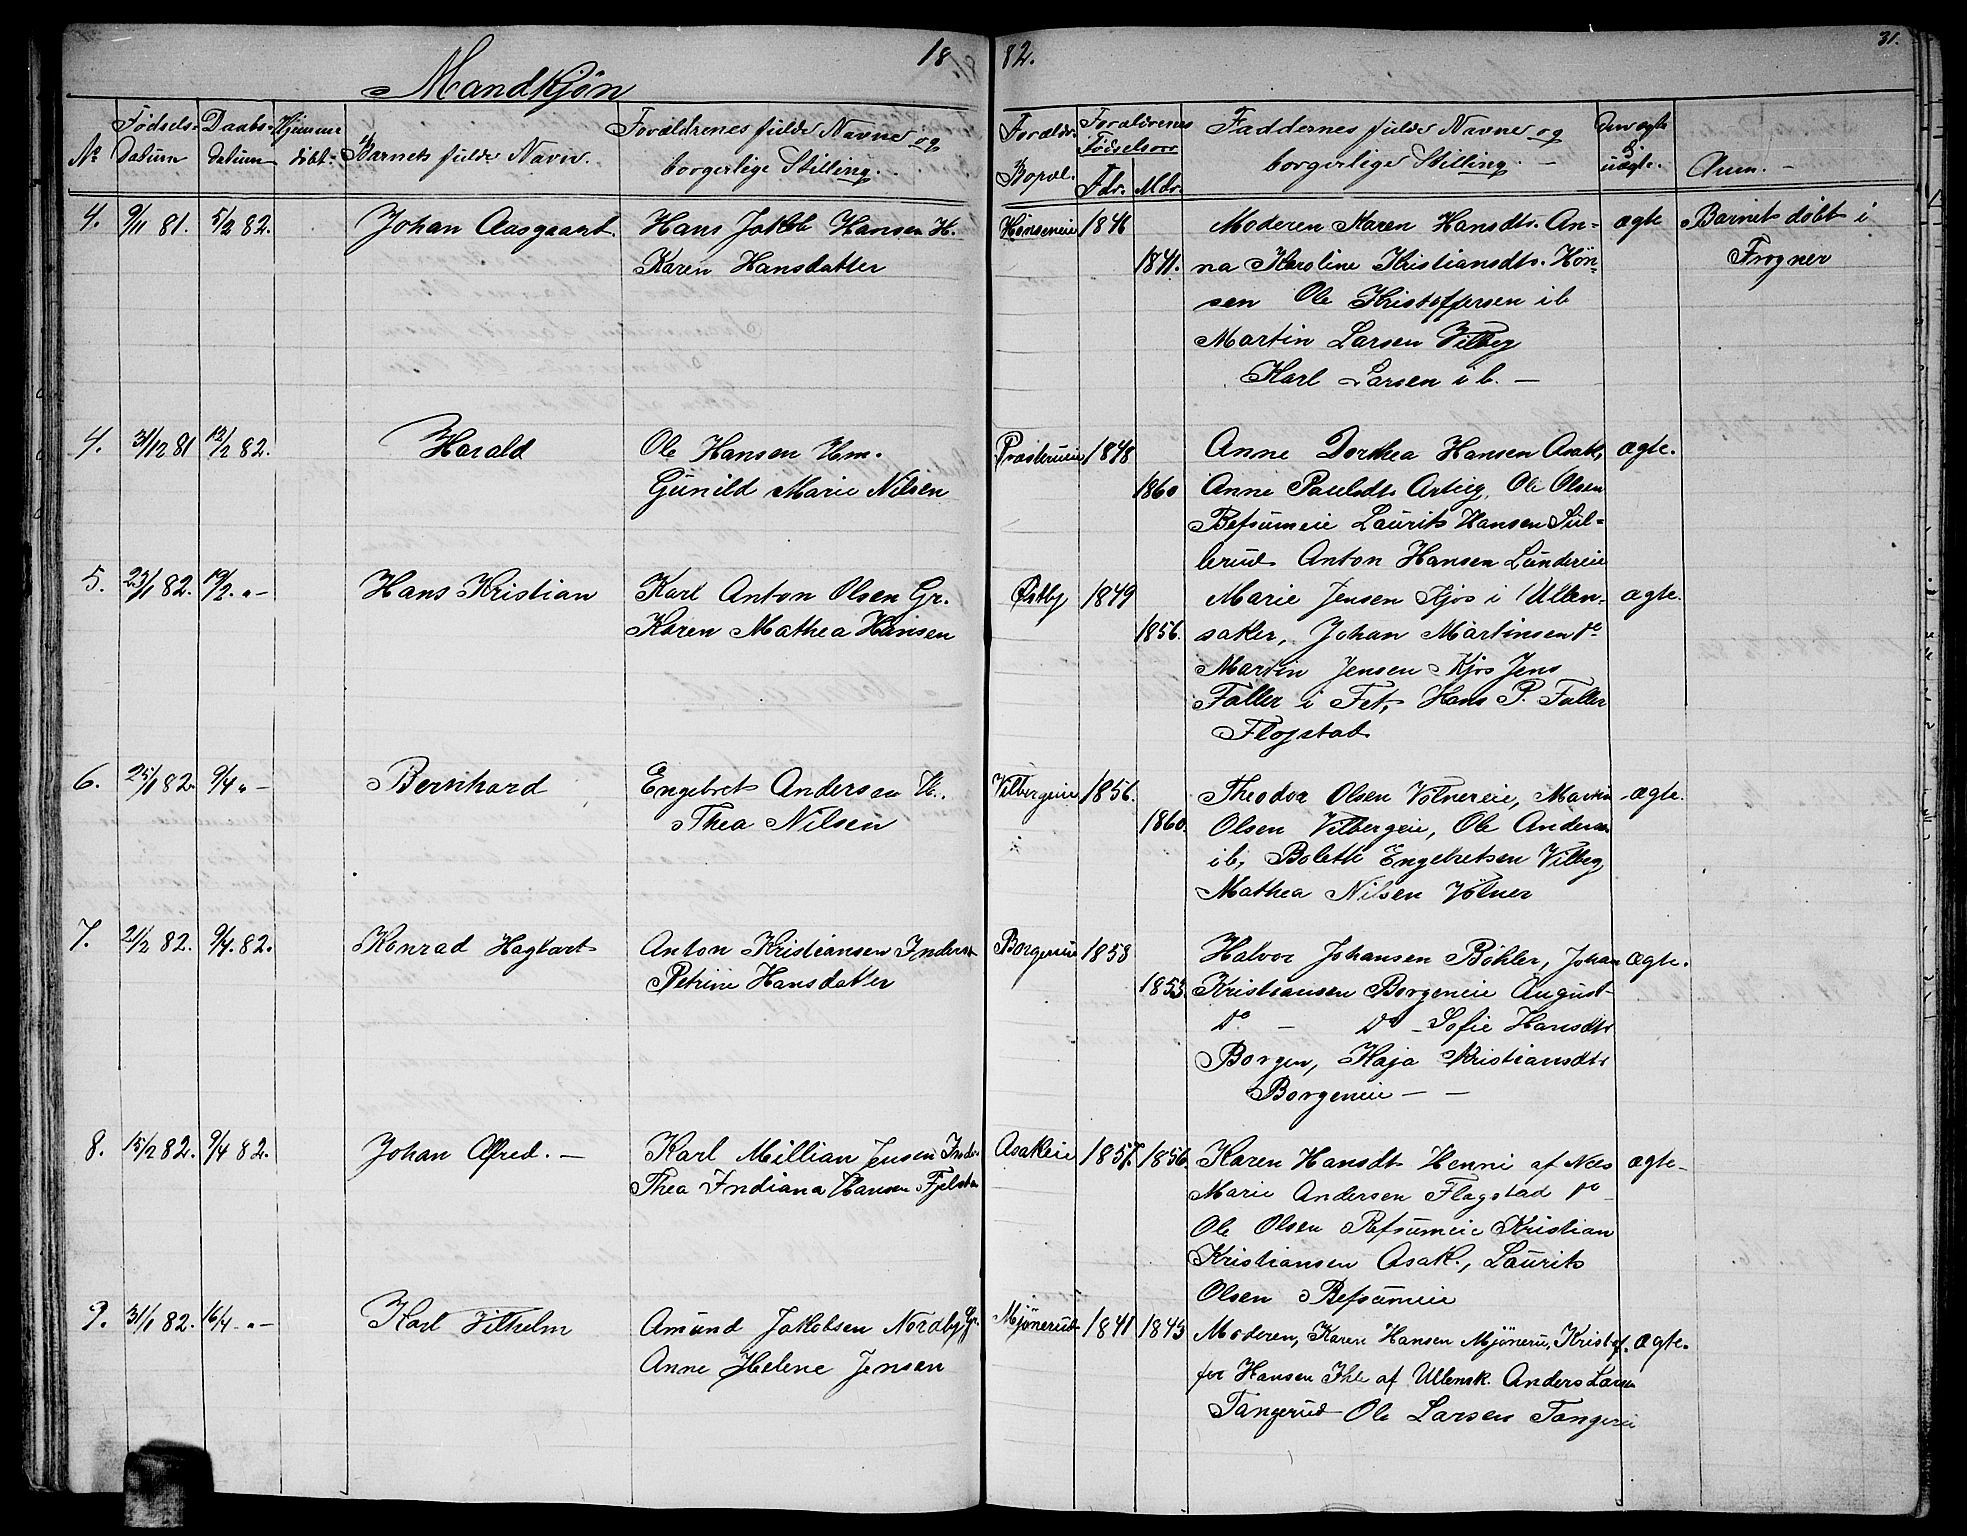 18 82. 31.
Mandkjøn
No Fødsels- Datum Daabs- datum Hjemme- døbt. Barnets fulde Navn. Forældrenes fulde Navne og borgerlige Stilling. Forældr. Bopæl. Forældrenes Fødselsaar Fdr. Mdr. Faddernes fulde Navne og borgerlige Stilling. Om ægte el. uægte. Anm.
4. 9/11 81. 5/2 82. Johan Aasgaard Hans Jakob Hansen H. Hønseneie 1846 Moderen Karen Hansdtr. An- ægte Barnet døbt i
Karen Hansdatter 1841. na Karoline Kristiansdtr. Høn- Frogner
sen Ole Kristoffersen ib
Martin Larsen Vilbeg
Karl Larsen ib. —
4. 31/12 81 12/2 82. Harald Ole Hansen Hm. Præsterueie 1848 Anne Dorthea Hansen Asak, ægte.
Gunild Marie Nilsen 1860 Anne Paulsdtr Arteig, Ole Olsen
Refsumeie Laurits Hansen Sul-
lerud Anton Hansen Lundereie
5. 23/1 82. 19/2 „ — Hans Kristian Karl Anton Olsen Gr. Østby 1849 Marie Jensen Kjos i Ullen- ægte.
Karen Mathea Hansen 1856. saker, Johan Martinsen do
Martin Jensen Kjos Jens
Faller i Fet, Hans P. Faller
Flogstad
6. 25/1 82. 9/4 „ — Bernhard Engebret Andersen H. Vilbergeie 1856. Theodor Olsen Volnereie, Martin ægte.
Thea Nilsen 1860. Olsen Vilbergeie, Ole Andersen
ib, Bolette Engebretsen Vilbeg
Mathea Nilsen Volner
7. 21/2 82. 9/4. 82. Konrad Hagbart Anton Kristiansen Inderst Borgeneie 1858 Halvor Johansen Bøhler, Johan ægte.
Petrine Hansdatter 1853. Kristiansen Borgeneie August
do — do — Sofie Hansdtr
Borgen, Haja Kristiansdtr
Borgeneie — —
8. 15/2 82. 9/4 82. Johan Alfred. — Karl Millian Jensen Inds. Asakeie 1857. 1856. Karen Hansdtr Henni af Nes ægte
Thea Indiana Hansen Marie Andersen Flagstad do
Ole Olsen Refsumeie Kristian
Kristiansen Asak., Laurits
Olsen Refsumeie
9. 31/1 82. 16/4 „ — Karl Vilhelm Amund Jakobsen Nordby Gr. Mjønerud 1841 1843 Moderen, Karen Hansen Mjøneru, Kristof- ægte.
Anne Helene Jensen fer Hansen Ihle af Ullensk. Anders Larsen
Tangerud Ole Larsen Tangerei